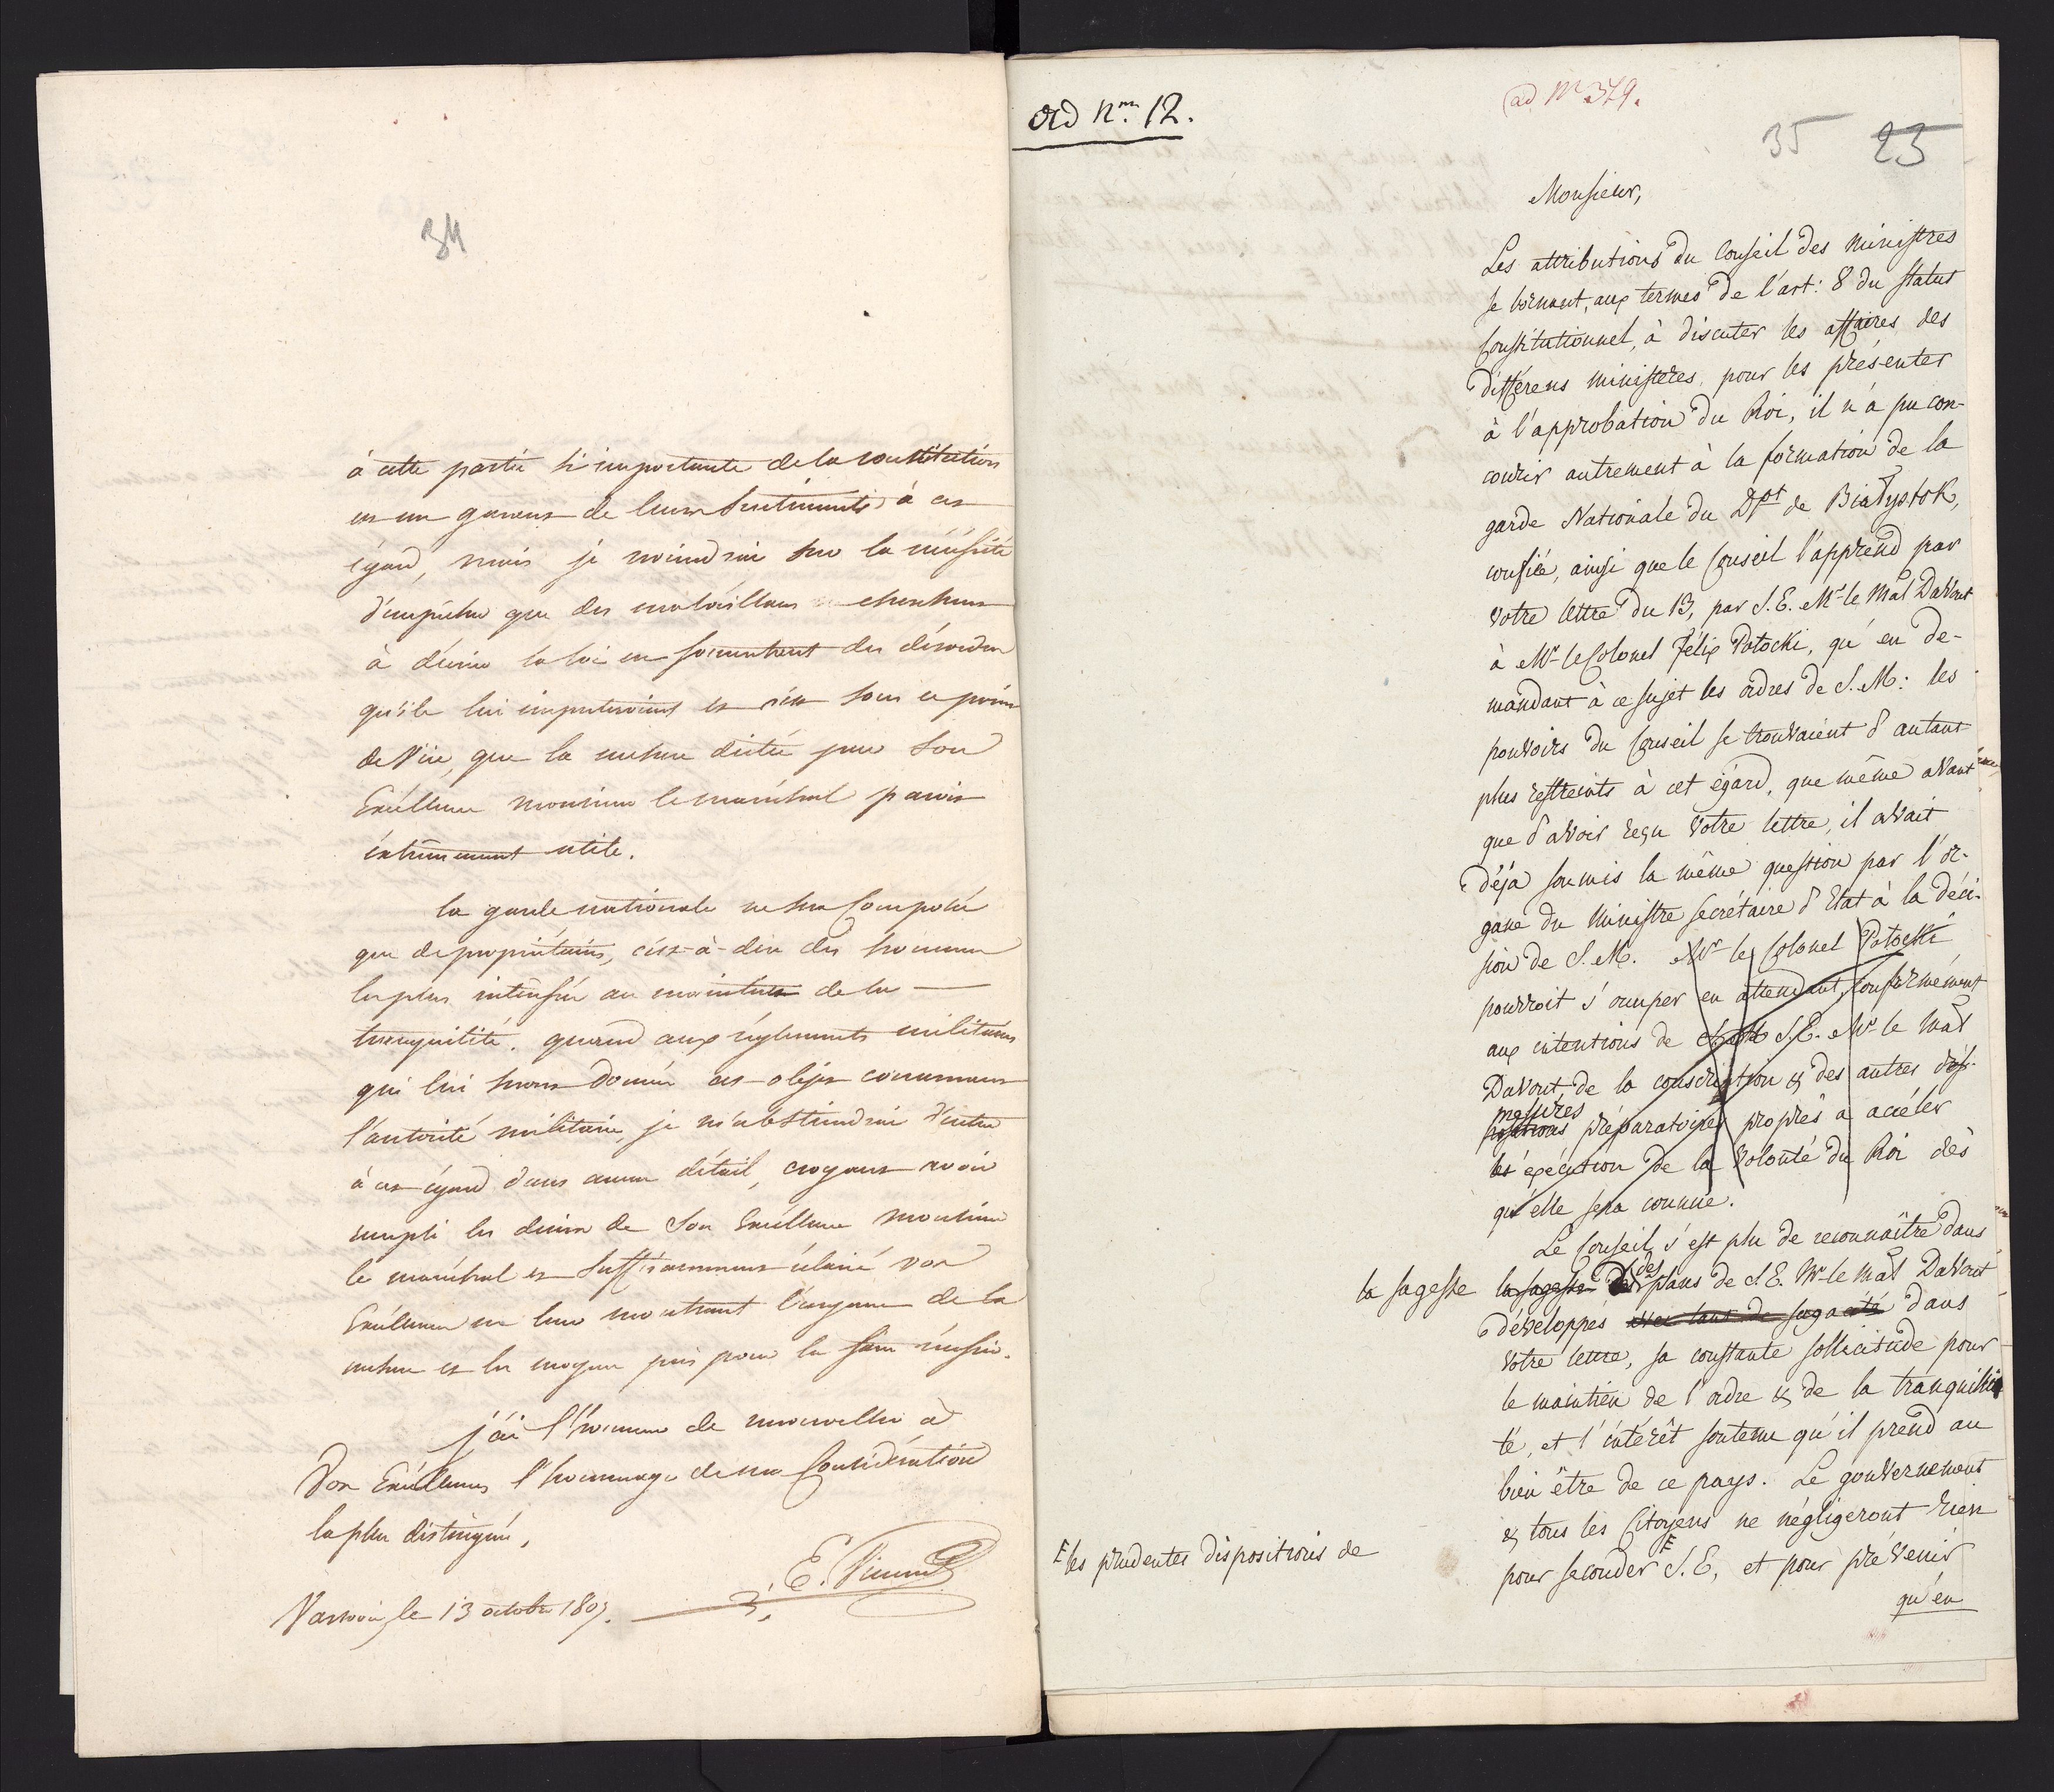 34
à cette partie si importante de la constitution
est un garant de leurs sentiments à cet
égard, mais je reviendrai sur la nécessité
d'empêcher que des malveillans ne cherchent
à décrier la loi en fomentent des désordres
qu'ils lui imputeroient et c'est sous ce point
de Vüe, que la mesure dictée par Son
Excellence monsieur le maréchal parois
éxtrêmement utile.
la garde nationale ne sera Composée
que de propriétaires, c'est-à-dire des hommes
les plus intéressés au maintien de la
tranquilité. quand aux réglements militaires
qui lui seront donnés cet objet concernant
l'autorité militaire, je m'abstiendrai d'entrer
à cet égard dans aucun détail, croyant avoir
rempli les désirs de Son Excellence monsieur
le maréchal et suffisamment éclairé vos
Excellences en leur montrant l'urgence de la
mesure et les moyens pris pour la faire réussir.
j'ai l'honneur de renouveller à
Vos Excellences l'hommage de ma Considération
la plus distinguée,
E. Vincent
Varsovie, le 13 octobre 1807.
ad Nm. 12.
ad Nr 379.
35 23
Monsieur,
Les attributions du Conseil des Ministres
se bornant, aux termes de l'art: 8 du Statut
Constitutionnel, à discuter les affaires des
différens ministeres, pour les présenter
à l'approbation du Roi, il n'a pu con-
courir autrement à la formation de la
garde Nationale du Dpt de Białystok,
confiée, ainsi que le Conseil l'apprend par
votre lettre du 13, par S. E. Mr le Mal Davout
à Mr le Colonel Félix Potocki, qu'en de-
mandant à ce sujet les ordres de S. M: les
pouvoirs du Conseil se trouvaient d'autant
plus restreints à cet égard, que même avant
que d'avoir reçu votre lettre, il avait
déjà soumis la même question par l'or-
gane du Ministre Secrétaire d'Etat à la déci-
sion de S. M. Mr le Colonel Potocki
pourroit s'occuper en attendant, conformément
aux intentions de S. E. Mr le Mal
Davout de la conscription & des autres dis-
mesures
positions préparatoires propres a accéler
les éxécution de la volonté du Roi dès
qu'elle sera connue.
Le Conseil s'est plu de reconnaître dans
la sagesse la sagesse des plans de S. E. Mr le Mal Davout
développés avec tant de sagacité dans
votre lettre, sa constante sollicitude pour
le maintien de l'ordre & de la tranquilli
té, et l'intérêt soutenu qu'il prend au
bien être de ce pays. Le gouvernement
& tous les Citoyens ne négligeront rien
F les prudentes dispositions de
pour seconder F S. E, et pour prévenir
qu'en